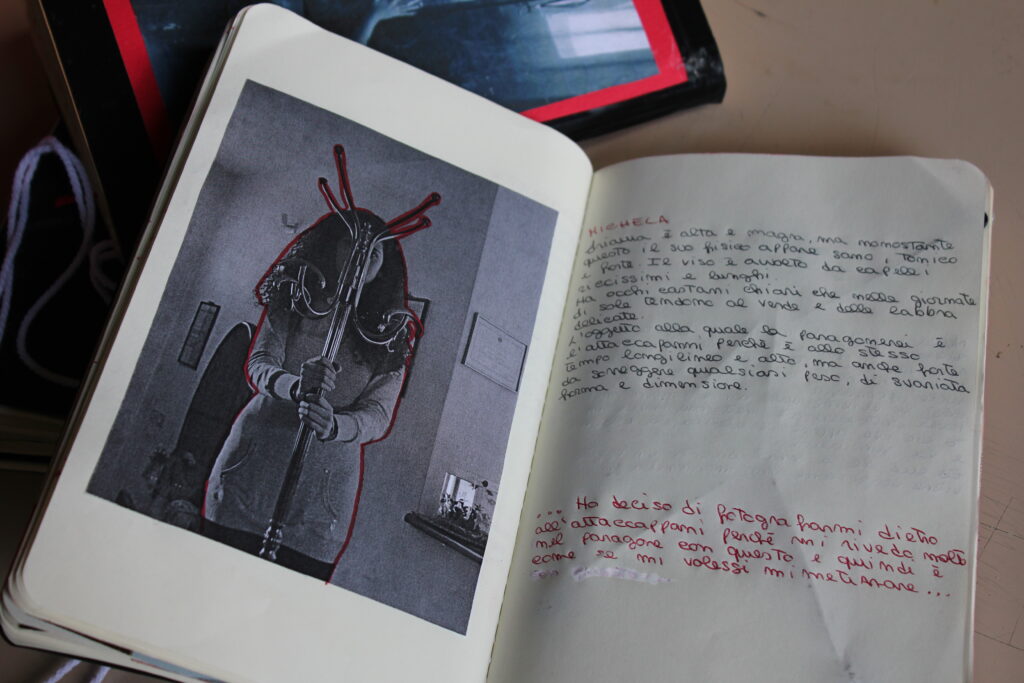 MICHELA
Oriana è alta e magra, ma nonostante
questo il suo fisico appare sano, tonico
e forte. Il viso è avvolto da capelli
riccissimi e lunghi.
Ha occhi castani chiari che nelle giornate
di sole tendono al verde e delle labbra
delicate.
L'oggetto alla quale la paragonerei è
l'attaccapanni perchè è allo stesso
tempo longilineo e alto, ma anche forte
da sorreggere qualsiasi peso, di svariata
forma e dimensione.
... Ho deciso di fotografarmi dietro
all'attaccappani perchè mi rivedo molto
nel paragone con questo e quindi è
come se mi volessi mimetizzare ...